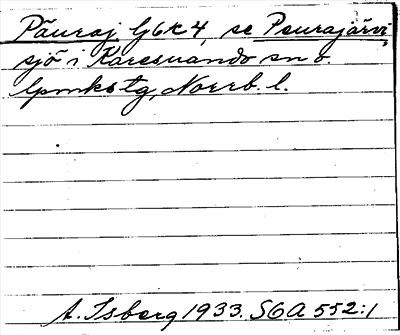 Päuraj. G6K4, se Peurajärvi,
sjö i Karesuando sn o.
lpmkstg, Norrb. l.
A. Isberg 1933. SGA 552:1